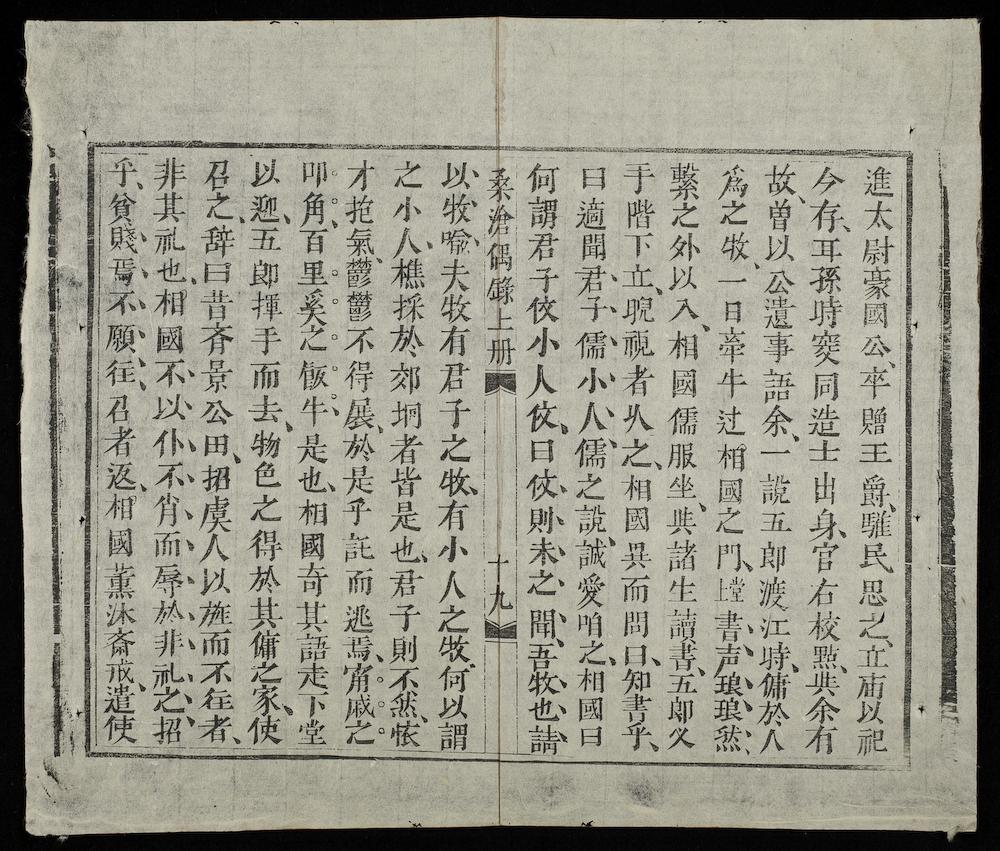 進太尉豪國公、卒贈王爵、驩民思之、立庙以祀
今存、耳孫時窔同造士出身、官右校㸃、共余有
故、曽以公遺事語余、一說五郎渡江時、傭於人
爲之牧、一日牽牛过相國之門、堂上書声琅琅然、
繫之外以入、相國儒服坐、共諸生讀書、五郎义
手階下立、睨視者乆之、相國異而問曰、知書乎、
曰適聞君子儒小人儒之說、誠愛咱之、相國曰
何謂君子佼小人佼曰佼則未之聞、吾牧也、請
桑滄偶錄上册 十九
以牧喻、夫牧有君子之牧、有小人之牧、何以謂
之小人、樵採於郊坰者皆是也、君子則不然、恠
才抱氣、鬱鬱不得展、於是乎託而逃焉、甯戚之
叩角、百里奚之飯牛是也、相國奇其語走下堂
以迎、五郎揮手而去、物色之得於其傭之家、使
召之、辞曰昔斉景公田、招虞人以旌而不徃者、
非其礼也、相國不以仆不肖而辱於非礼之招
乎、貧賤焉不願徃、召者返、相國薰沐斎戒、遣使